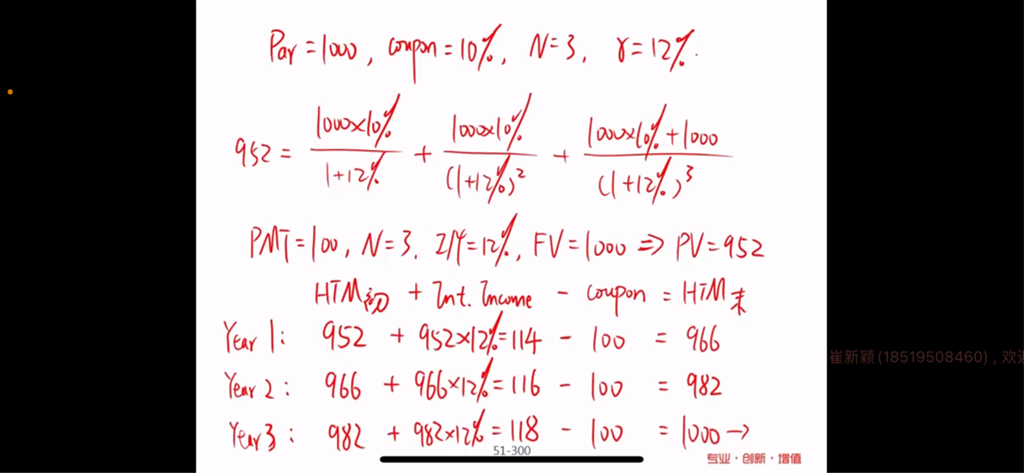 Par=1000, coupon=10%, N=3, r=12%.
952 = 1000×10% / 1+12% + 1000×10% / (1+12%)² + 1000×10%+1000 / (1+12%)³
PMT=100, N=3, I/Y=12%, FV=1000 ⇒ PV=952
HTM初 + Int. Income - coupon = HTM末
Year 1: 952 + 952×12%=114 - 100 = 966
Year 2: 966 + 966×12%=116 - 100 = 982
Year 3: 982 + 982×12%=118 - 100 = 1000 →
51-300
专业·创新·增值
崔新颖(18519508460),欢迎